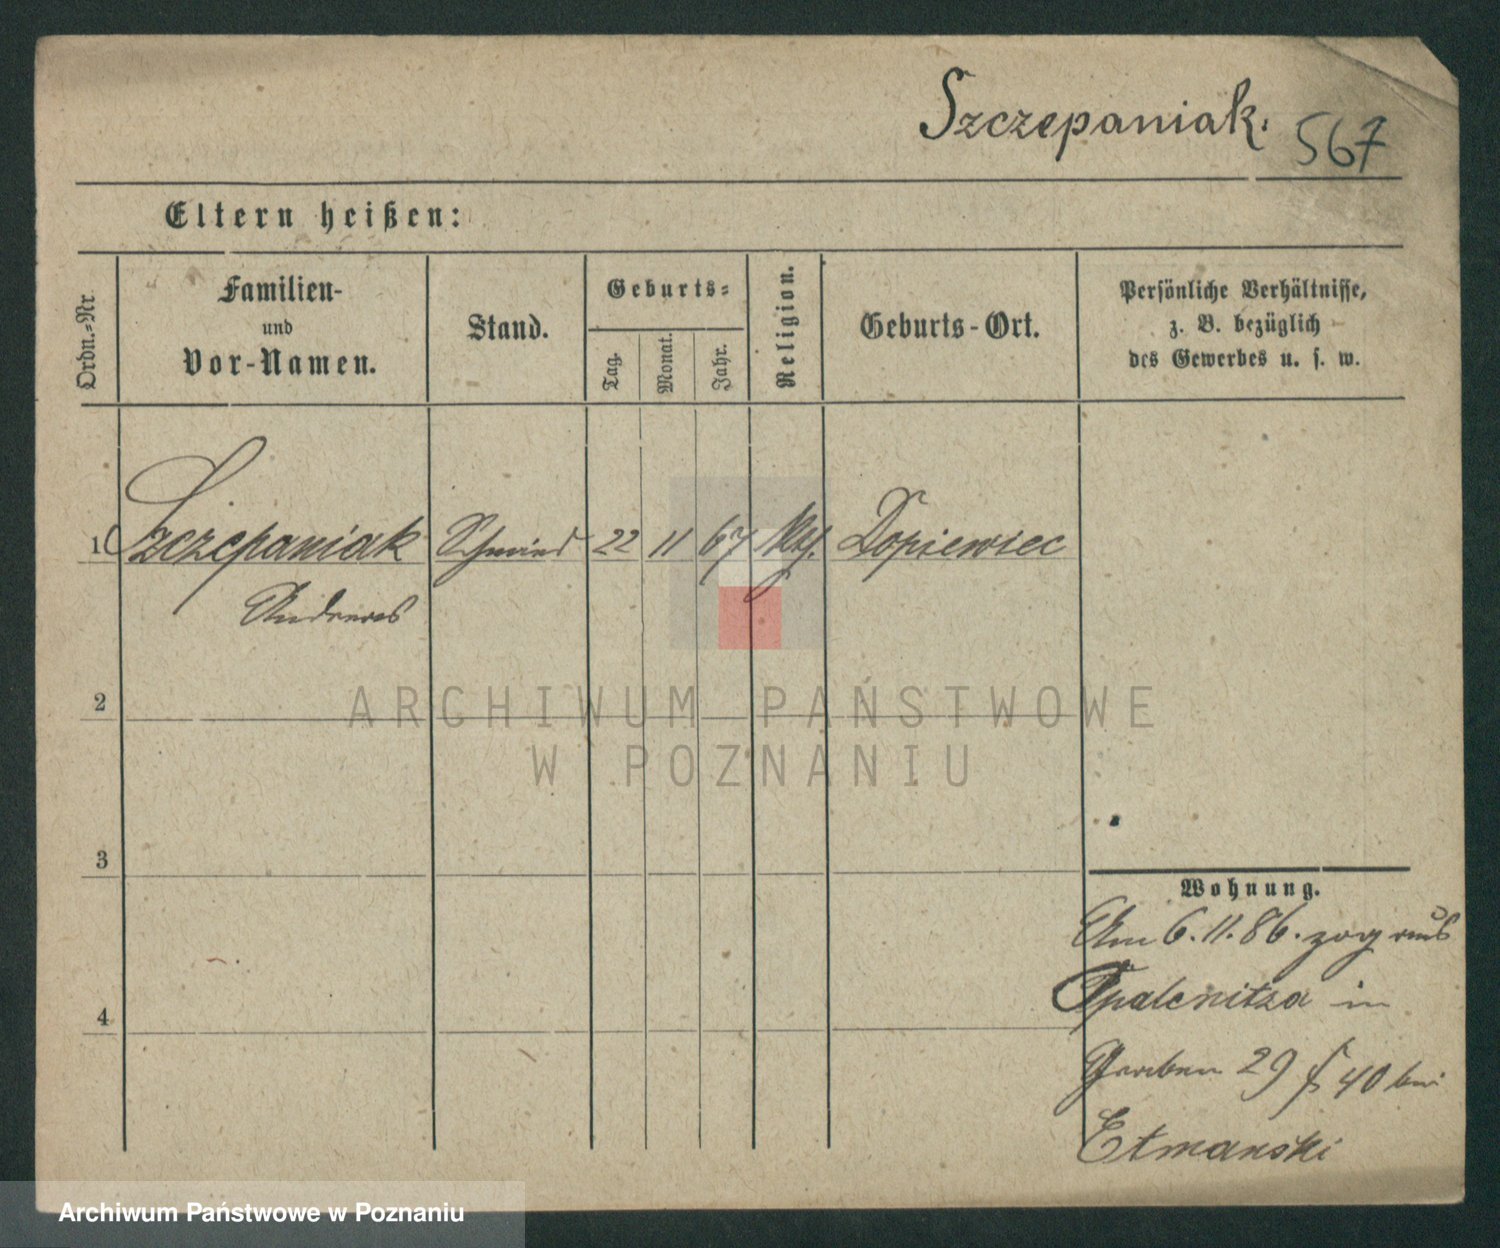 Szczepaniak. 567
Eltern heißen:
Ordn.=Nr.
Familien-
und
Vor-Namen.
Stand.
Geburts=
Tag.
Monat.
Jahr.
Religion.
Geburts-Ort.
Persönliche Verhältnisse,
z. B. bezüglich
des Gewerbes u. s. w.
1 Szczepaniak Schmied 22 11 67 Dopiewiec
Andreas
2
ARCHIWUM PAŃSTWOWE
W POZNANIU
3
Wohnung.
Am 6.11.86. zog aus
Opalenitza in
Graben 29 40 bei
4
Etmanski
Archiwum Państwowe w Poznaniu